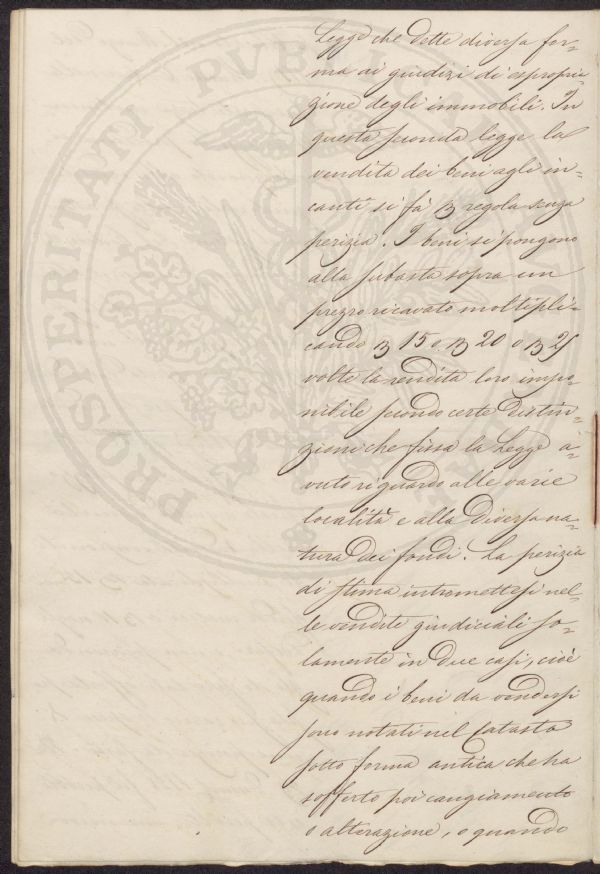 Legge che dette diversa for=
ma ai giudizi di espropria=
zione degli immobili. In
questa seconda legge la
vendita dei beni agli in=
canti si fà per regola senza
perizia. I beni si pongono
alla subasta sopra un
prezzo ricavato moltipli=
cando per 15 o per 20 o per 25
volte la rendita loro impo=
nibile secondo certe distin=
zioni che fissa la Legge a=
vuto riguardo alle varie
località e alla diversa na=
tura dei fondi. La perizia
di stima intromettesi nel=
le vendite giudiciali so=
lamente in due casi, cioè
quando i beni da vendersi
sono notati nel Catasto
sotto forma antica che ha
sofferto poi cangiamento
o alterazione, o quando
PROSPERITATI PUBLICAE